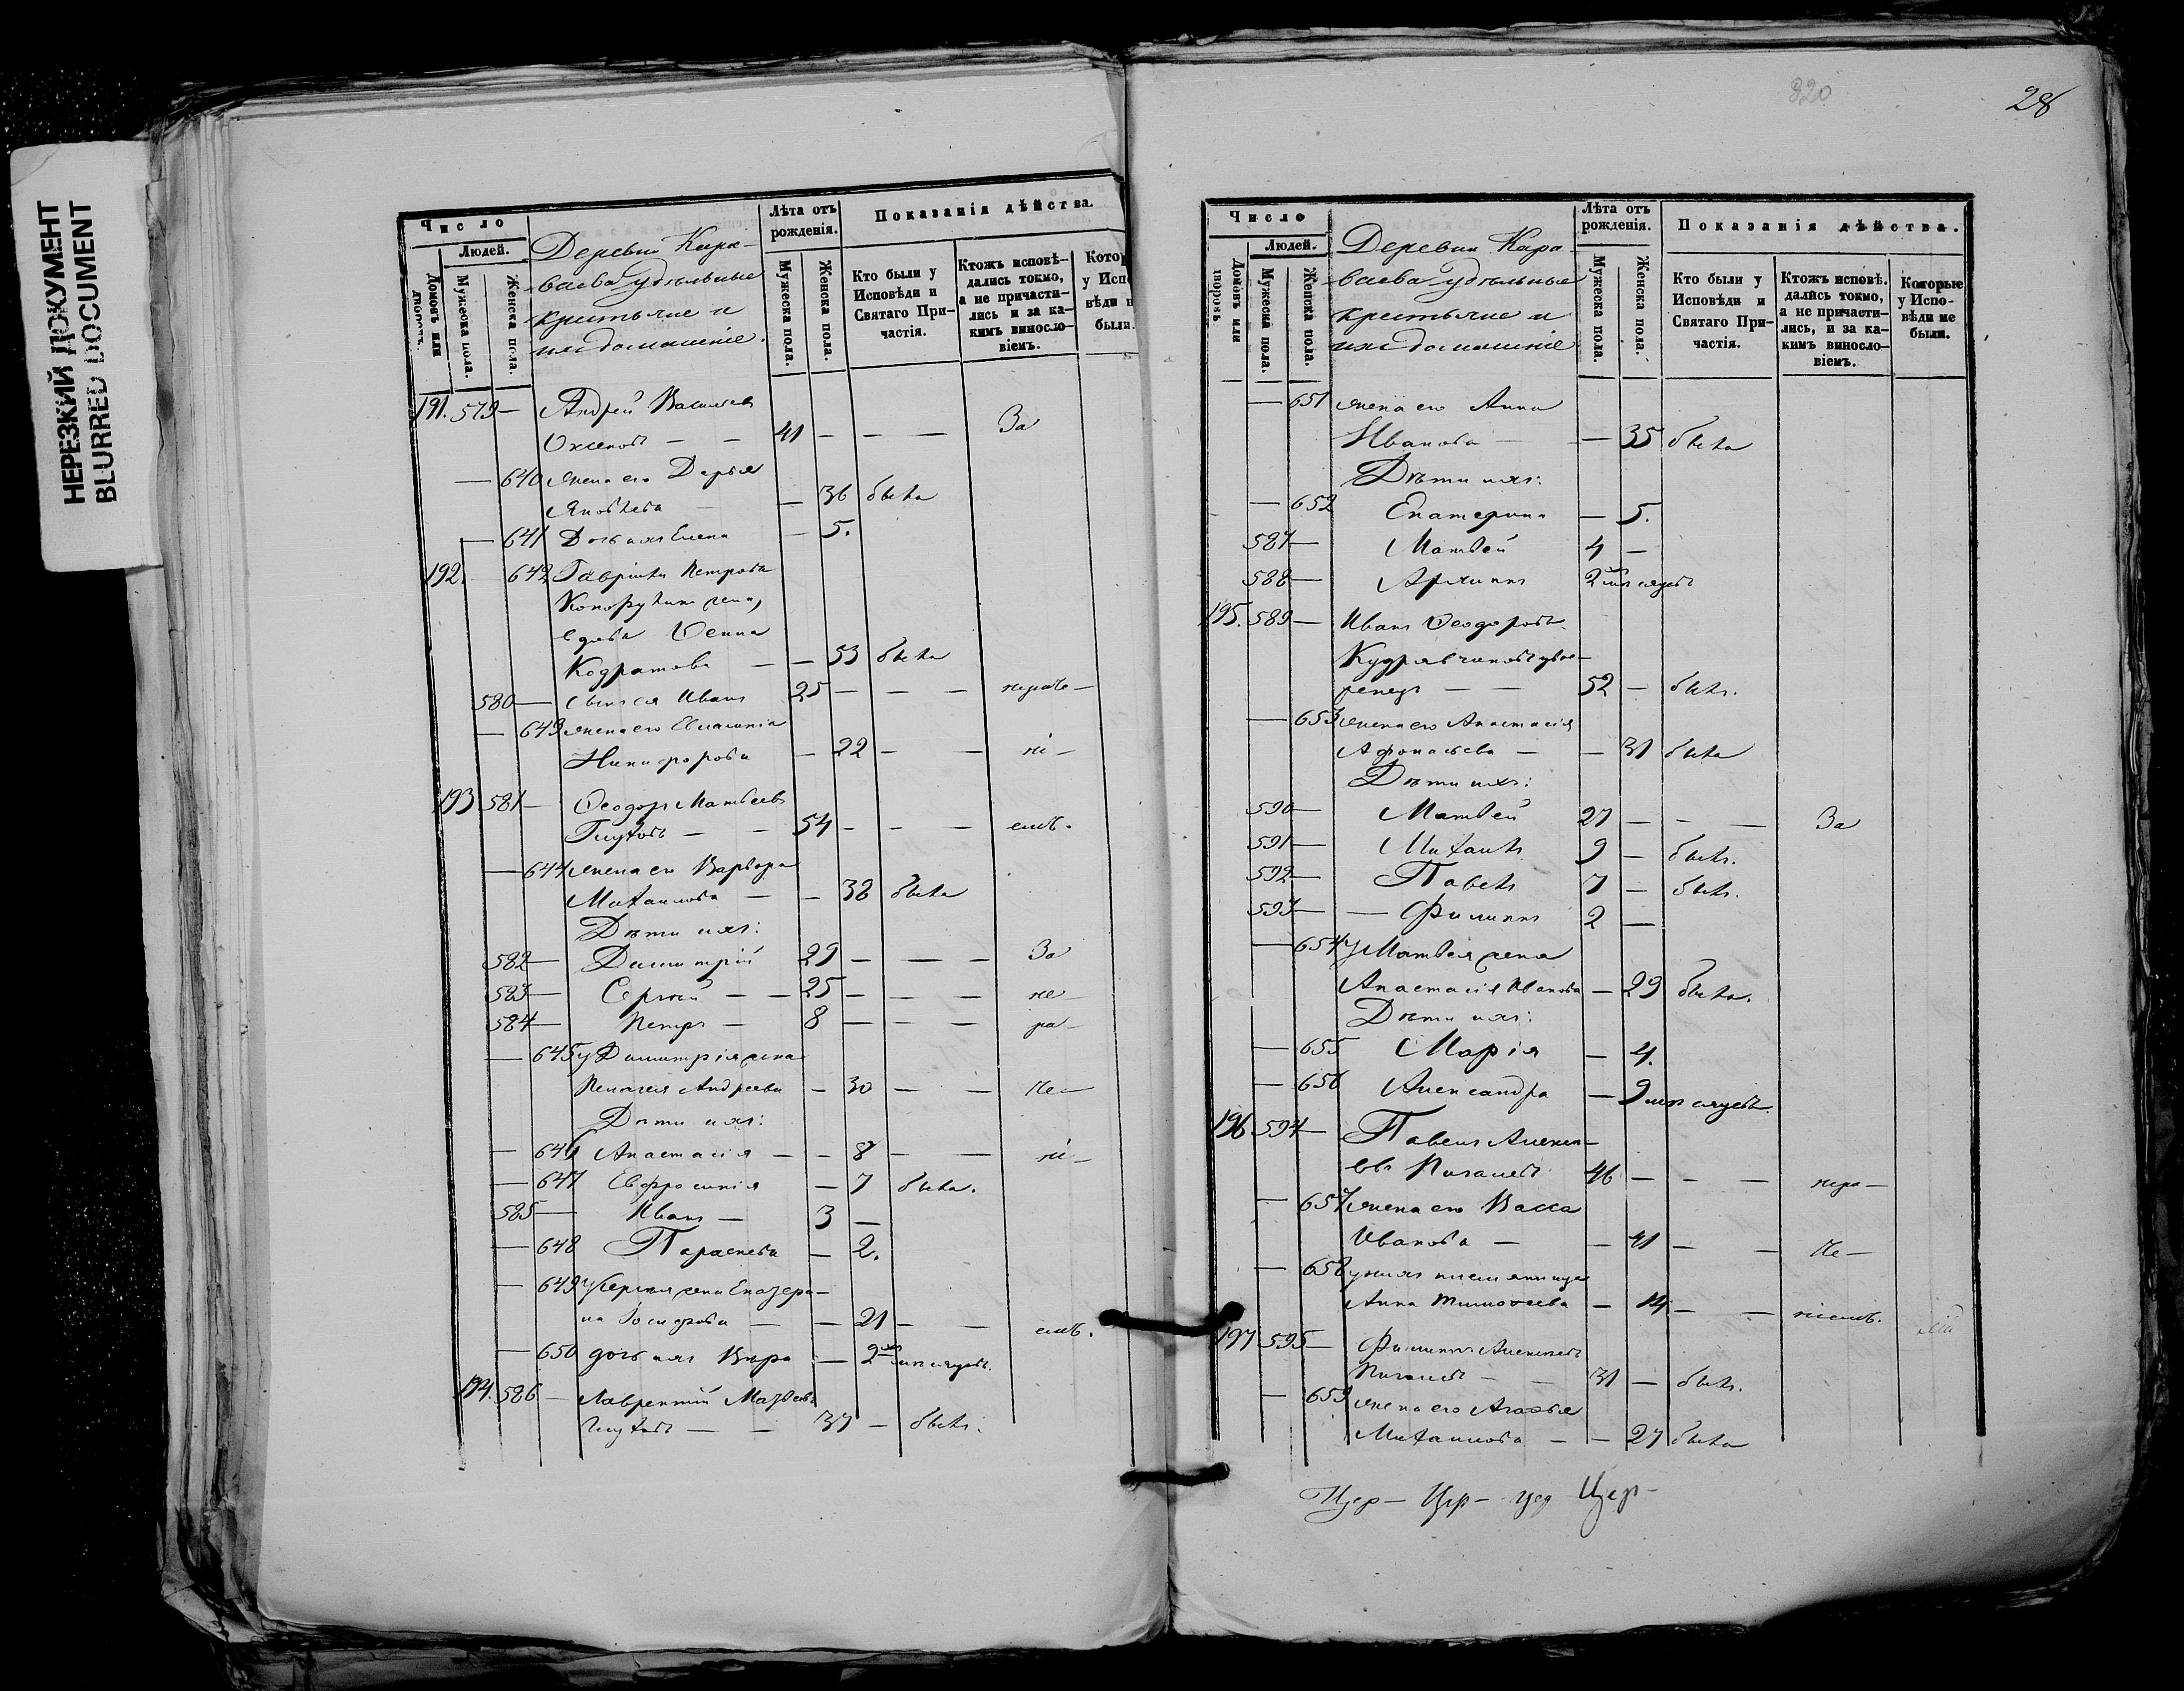 НЕРЕЗКИЙ ДОКУМЕНТ
BLURRED DOCUMENT
Число
Людей.
Домовъ или дворовъ.
Мужеска пола.
Женска пола.
Деревни Кара-
ваева удѣльные
крестьяне и
ихъ домашніе.
Лѣта отъ рожденія.
Мужеска пола.
Женска пола.
Показанія дѣйства.
Кто были у Исповѣди и Святаго Причастія.
Ктожъ исповѣдались токмо, а не причастились и за какимъ винословіемъ.
Котор
у Исп
вѣди н
были.
191. 579 — Андрей Васильевъ
— — 41 — — — За
— 640 жена его Дарья
Яковлева — 36 была
— 641 Дочь ихъ Елена — 5.
192. — 642 Гаврила Петрова
жена,
вдова Ѳекла
Кодратова — — 53 была
580 — сынъ ея Иванъ 25 — — —
— 643 жена его
Никифорова — 22 — — ні —
193 581 — Ѳеодоръ Матвеевъ
Глуховъ — — 54 — — — емъ.
— 644 жена его Варвара
Михаилова — — 38 была
Дѣти ихъ:
582 — Димитрій 29 — — — За
583 — Сергѣй — — 25 — — — не —
584 — Петръ — 8 — — — ра —
— 645 у Димитрія жена
Пелагея Андреева — 30 — — че —
Дѣти ихъ:
— 646 Анастасія — — 8 — — ні —
— 647 Евфросинія — 7 была.
585 — Иванъ — 3 —
— 648 Параскева — 2.
— 649 у Сергѣя жена Екатери-
на — — 21 — — емъ.
— 650 дочь ихъ Вѣра — 2 мѣсяцевъ.
194. 586 — Лаврентій Матвеевъ
Глуховъ — — 37 — былъ.
320
28
Число
Людей.
Домовъ или дворовъ.
Мужеска пола.
Женска пола.
Деревни Кара-
ваева удѣльные
крестьяне и
ихъ домашніе
Лѣта отъ рожденія.
Мужеска пола.
Женска пола.
Показанія дѣйства.
Кто были у Исповѣди и Святаго Причастія.
Ктожъ исповѣдались токмо, а не причастились, и за какимъ винословіемъ.
Которые у Исповѣди не были.
— 651 жена его Анна
Иванова — — 35 была
Дѣти ихъ:
— 652 Екатерина — 5.
587 — Матвей 4 —
588 — Архипъ 2 мѣсяцевъ
195. 589 — Иванъ Ѳеодоровъ
— — 52 — былъ.
— 653 жена его Анастасія
Афонасьева — — 31 была
Дѣти ихъ:
590 — Матвей 27 — — — За
591 — Михаилъ 9 — былъ.
592 — Павелъ 7 — былъ.
593 — — Филиппъ 2 —
— 654 у Матвея жена
Анастасія Иванова — 29 была.
Дѣти ихъ:
— 655 Марія — 4.
— 656 Александра — 9 мѣсяцевъ.
196 594 — Павелъ Алексѣ-
евъ Пигалевъ 46 — — — нера —
— 657 жена его Васса
Иванова — — 41 — — че —
— 658 у нихъ племянница
Анна Тимоѳеева — 14 — — ніемъ.
197 595 — Филиппъ Алексѣевъ
Пигалевъ — — 31 — былъ.
— 659 жена его Агафья
Михаилова — — 27 была